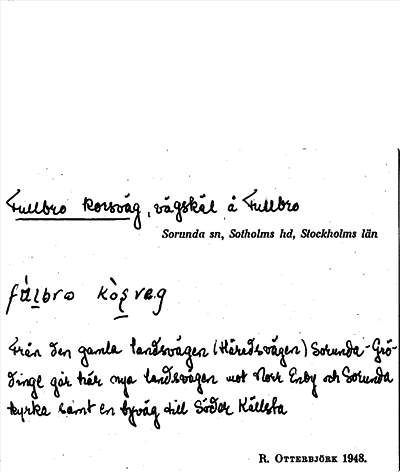 Fullbro korsväg, vägskäl å Fullbro
Sorunda sn, Sotholms hd, Stockholms län
fúlbro kòșvæg
Från den gamla landsvägen (Häredsvägen) Sorunda-Grö-
dinge går här nya landsvägen mot Norr Enby och Sorunda
kyrka samt en byväg till Söder Källsta
R. OTTERBJÖRK 1948.